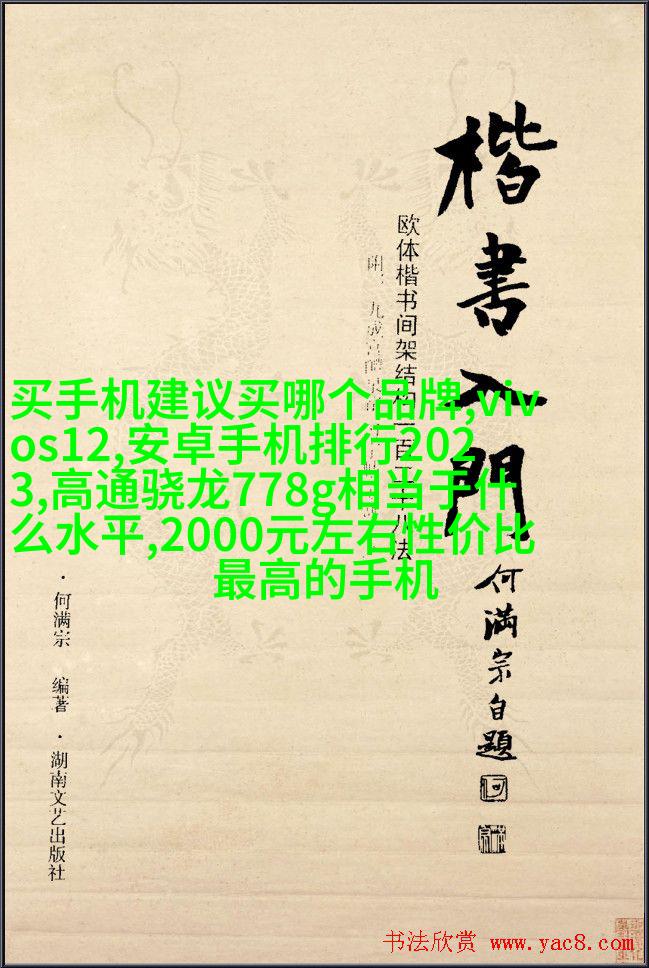 楷書入門
欧体楷书间架结构一百五十八法
何满宗自题
买手机建议买哪个品牌,viv
os12,安卓手机排行202
3,高通骁龙778g相当于什
么水平,2000元左右性价比
最高的手机
·何满宗 编著·湖南文艺出版社
书法欣赏 www.yac8.com